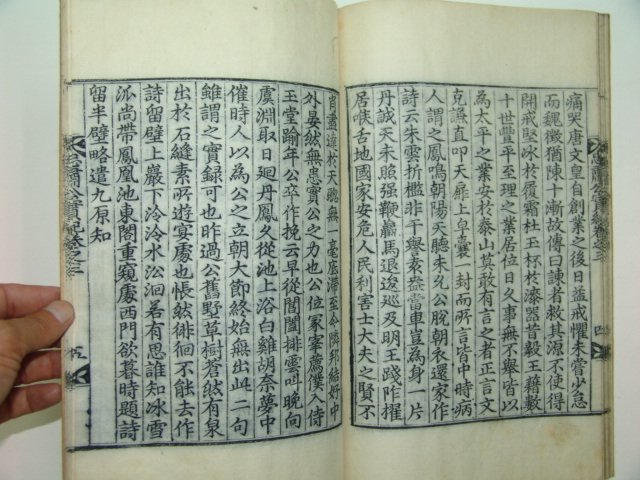 痛哭唐文皇自創業之後日益戒懼未嘗少怠
而魏徵猶陳十漸故傳曰諫者救其源不使得
開戒堅冰於履霜杜玉杯於漆器昔毅王藉數
十世豐平至理之業居位日久事無不擧皆以
為太平之業安於泰山莫敢有言之者正言文
克謙直叩天扉上皐囊一封而所言皆中時病
人謂之鳳鳴朝陽天聽未允公脫朝衣還家作
詩云朱雲折檻非干譽袁盎當車豈為身一片
丹誠天未照强鞭羸馬退逡巡及明王踐阼擢
居喉舌地國家安危人民利害士大夫之賢不
肖盡達於天聰無一毫底滯至今隣邦結好中
外晏然無患實公之力也公位冢宰薦僕入侍
玉堂踰年公卒作挽云早從閶闔排雲叫晚向
虞淵取日廻丹鳳久從池上浴白雞胡奈夢中
催時人以為公之立朝大節終始無出此二句
雖謂之實錄可也昨過公舊野草樹蒼然有泉
出於石縫素所遊宴處也悵然徘徊不能去作
詩留壁上巖下泠泠水沿洄若有思誰知氷雪
派尚帶鳳凰池東閤重窺處西門欲暮時題詩
留半壁略遣九原知
忠肅公實紀卷之三